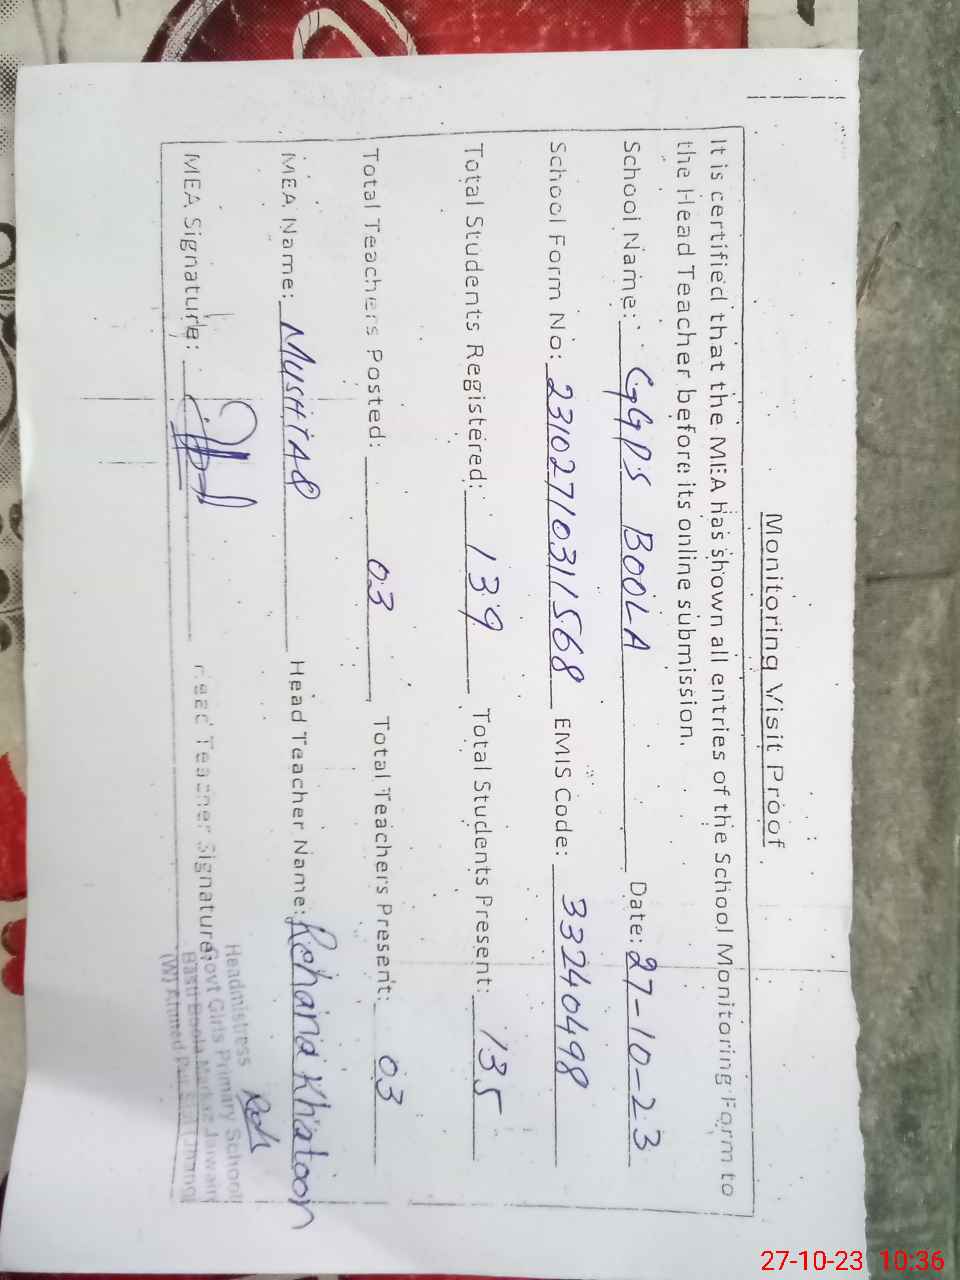 Monitoring Visit Proof
It is certified that the MEA has shown all entries of the School Monitoring Form to
the Head Teacher before its online submission.
School Name: GGPS BOOLA Date: 27-10-23
School Form No: 2310271031 1568 EMIS Code: 33240498
Total Students Registered: 139 Total Students Present: 135
Total Teachers Posted: 03 Total Teachers Present: 03
MEA Name: MUSHTAQ Head Teacher Name: Rehana Khatoon
MEA Signature: Head Teacher Signature:
Headmistress
Govt Girls Primary School
Basti Boola Markaz
(W) Ahmed Pur
27-10-23 10:36